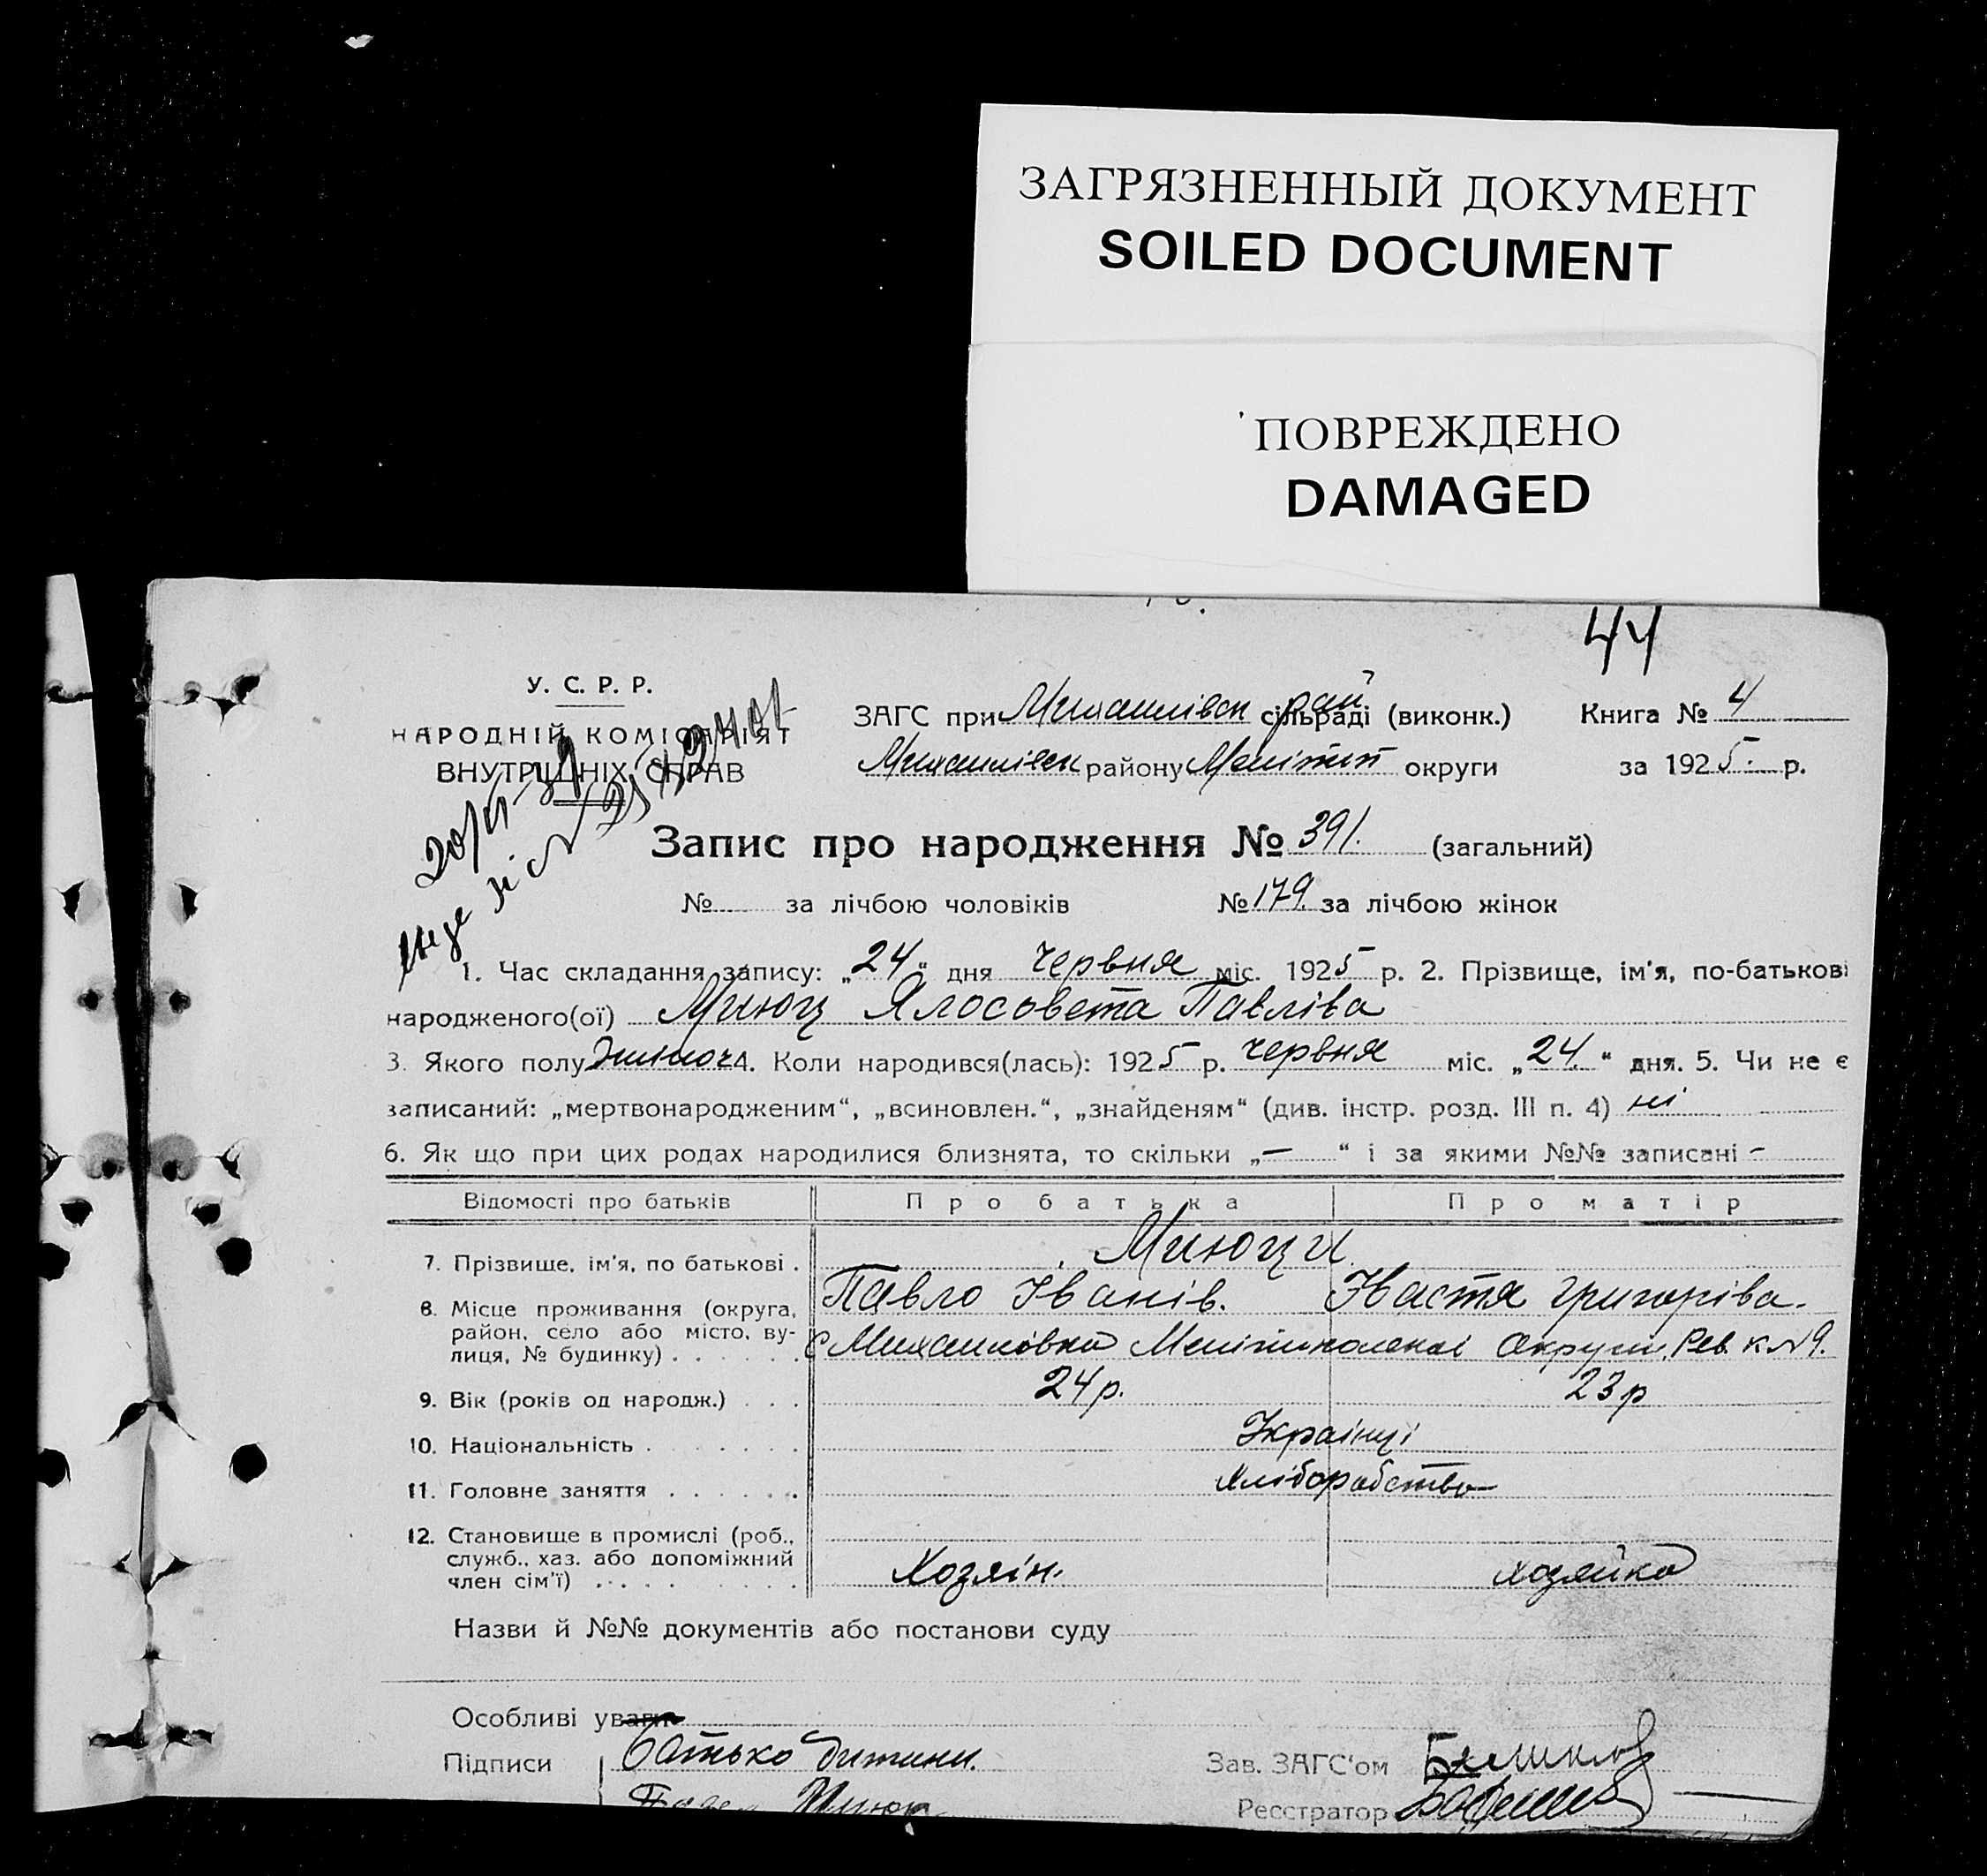 ЗАГРЯЗНЕННЫЙ ДОКУМЕНТ
SOILED DOCUMENT
ПОВРЕЖДЕНО
DAMAGED
44
У. С. Р. Р.
НАРОДНІЙ КОМІСАРІЯТ
ВНУТРІШНІХ СПРАВ
ЗАГС при Михайлівськ рай сільраді (виконк.) Книга № 4
Михайлівськ району Меліт округи за 1925. р.
Запис про народження № 391. (загальний)
№ за лічбою чоловіків № 179. за лічбою жінок
1. Час складання запису: „24“ дня червня міс. 1925 р. 2. Прізвище, ім'я, по-батькові
народженого(ої) Мнюх Ялосовета Павліва
3. Якого полу жіноч 4. Коли народився(лась): 1925 р. червня міс. „24.“ дня. 5. Чи не є
записаний: „мертвонародженим“, „всиновлен.“, „знайденям“ (див. інстр. розд. III п. 4) ні
6. Як що при цих родах народилися близнята, то скільки „—“ і за якими №№ записані –
Відомості про батьків Про батька Про матір
7. Прізвище, ім'я, по батькові .
Павло Іванів. Настя Григоріва.
8. Місце проживання (округа,
район, село або місто, ву-
лиця, № будинку) . . . . . . с Михайловка Мелітипольскої Округи, Рев. к №9.
9. Вік (років од народж.) . . . 24 р. 23 р
10. Національність . . . . . . . Українці
11. Головне заняття . . . . . . Хліборобство
12. Становище в промислі (роб.,
служб., хаз. або допоміжний
член сім'ї) . . . . . . . . . . Хозяін. хозяйка
Назви й №№ документів або постанови суду
Особливі уваги
Підписи Батько дитини.
Зав. ЗАГС'ом
Реєстратор